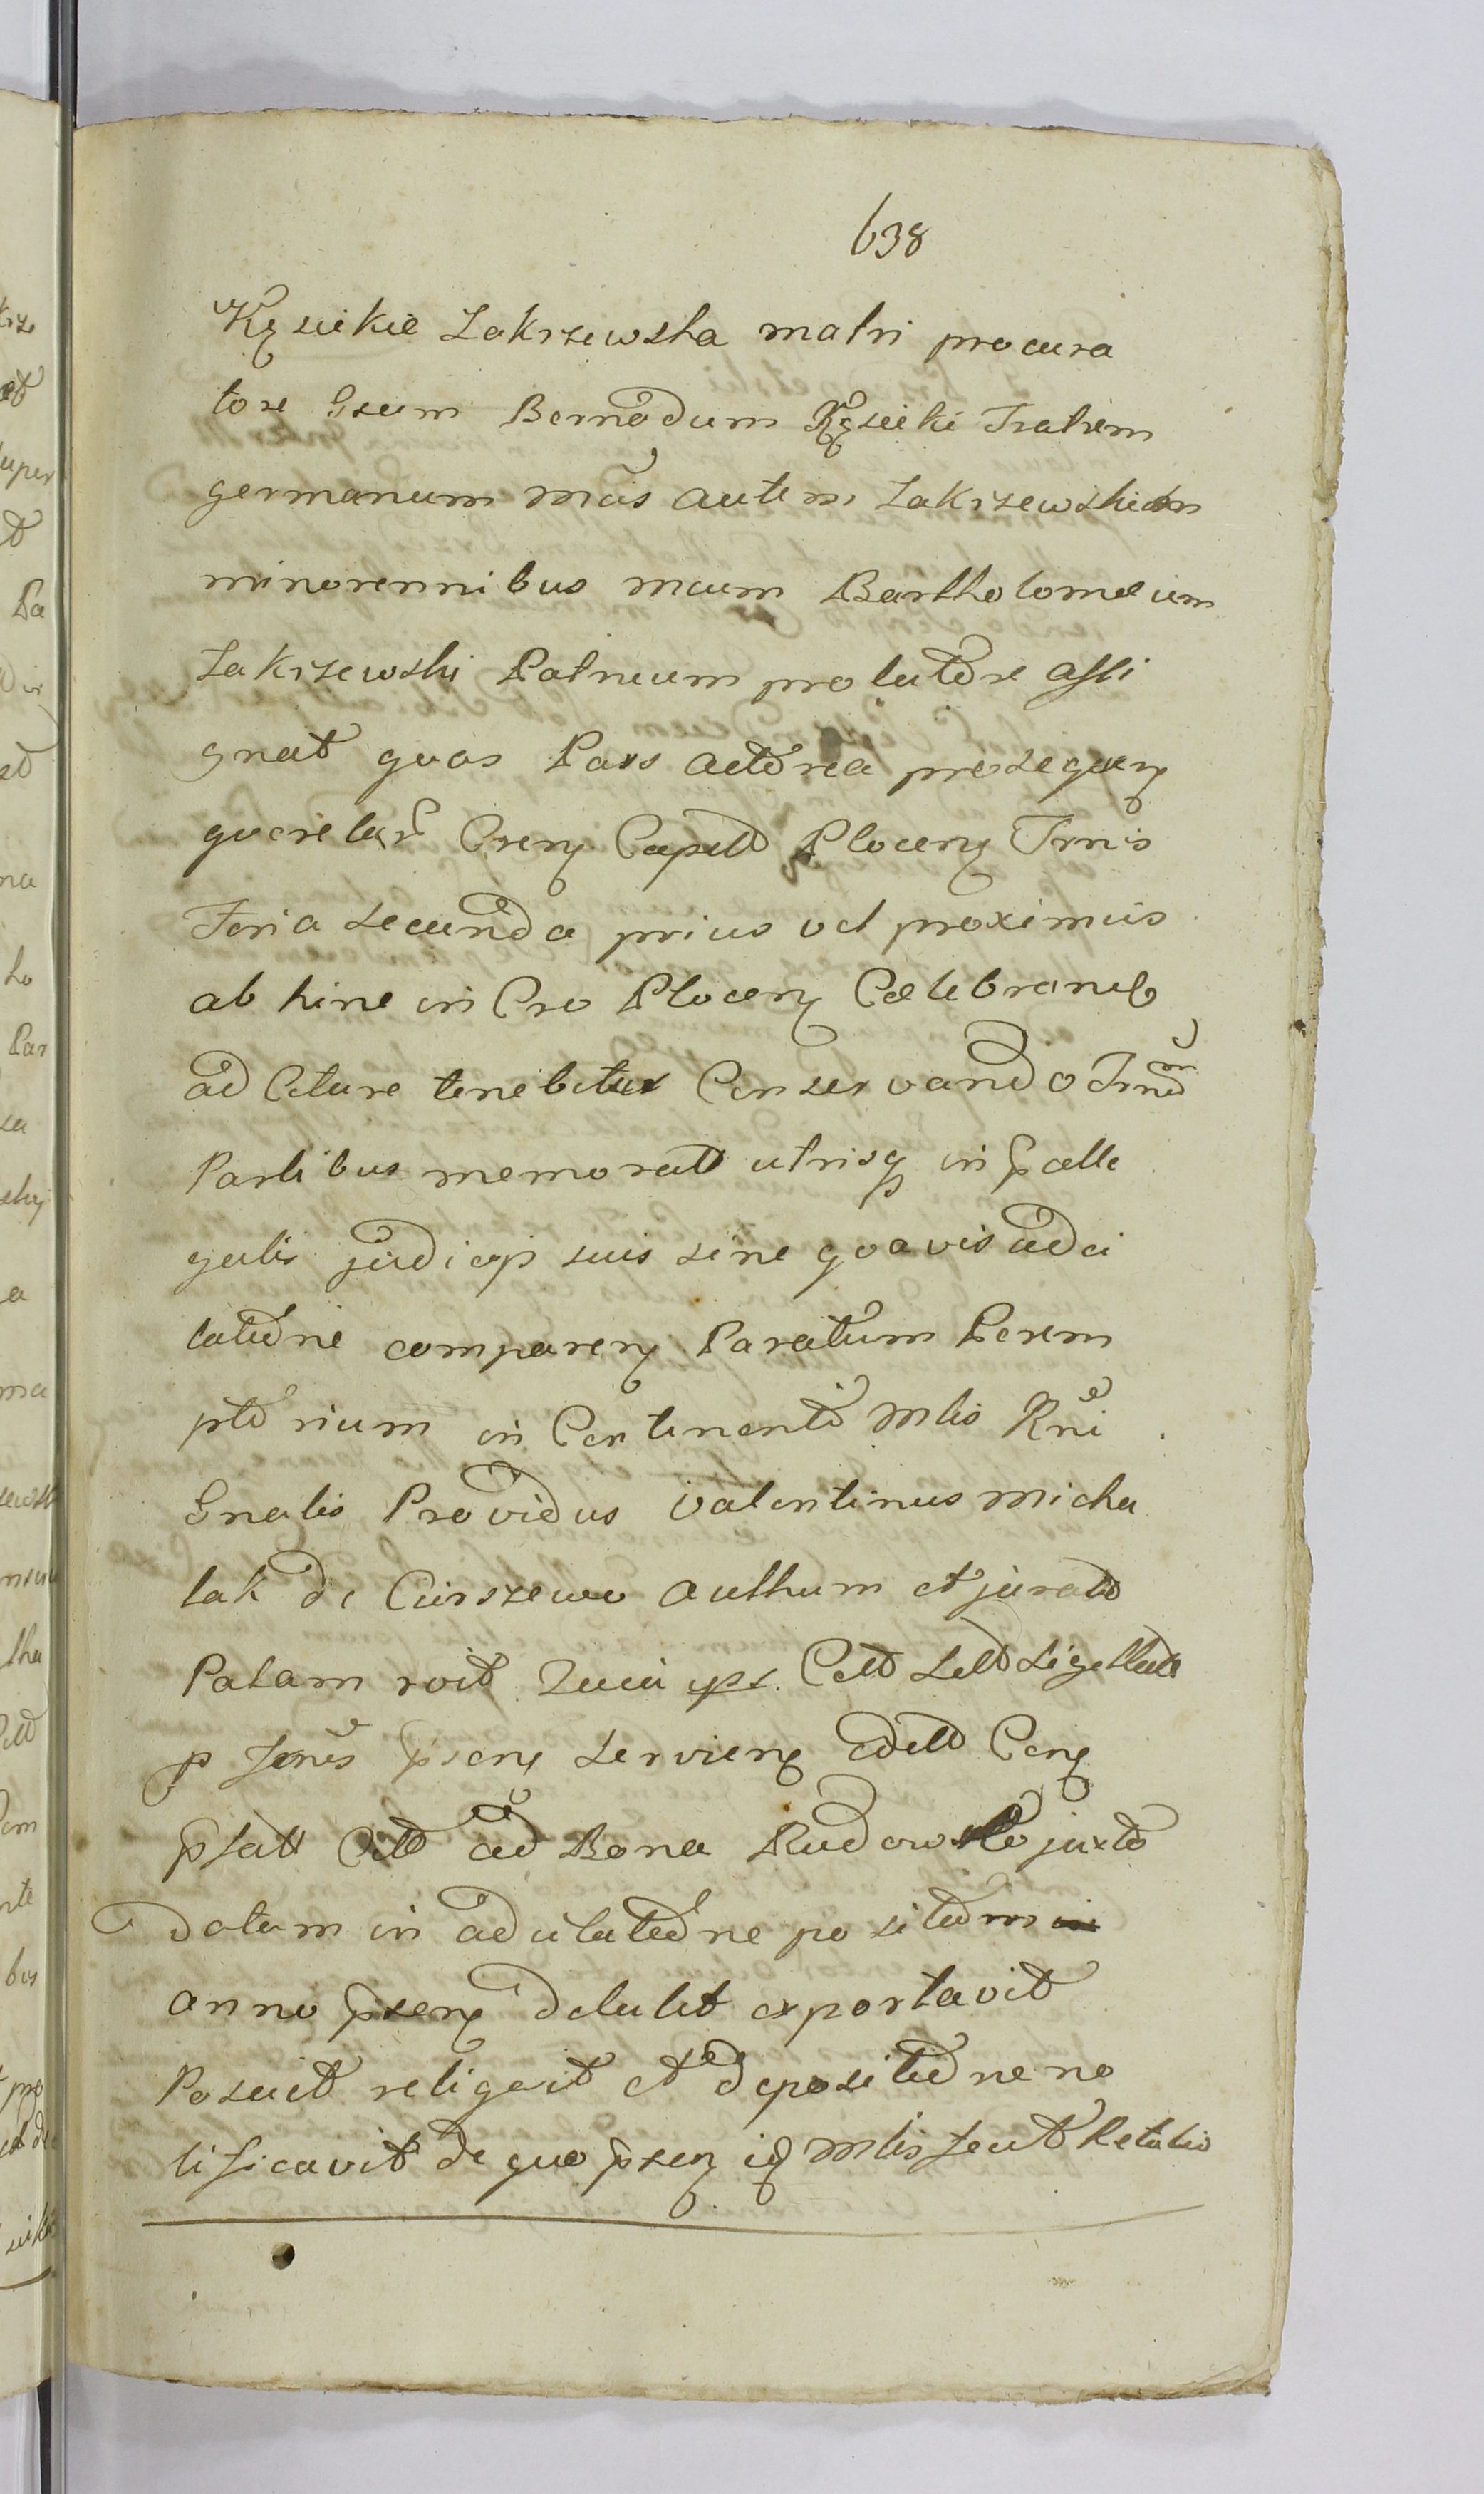 638
Kęsickie Zakrzewska matri procura
tore Gsum Bernadum Kęsicki Fratrem
germanum mcis autem Zakrzewskiom
minorennibus mcum Bartholomeum
Zakrzewski Patruum pro tutore assi
gnat quos Pars actorea prosequen
querelas Cren Capitt Plocen Trmis
Feria secunda prius vel proximius
ab hinc in Cro Plocen Celebrand
ad Citare tenebitur Conservando Trnum
Partibus memoratt utrisq in
galis judicys suis sine quavis adci
tatione comparen Paratum Perem
ptorium in Continenti Mlis Rni
Gnalis Providus Valentinus Micha
lak de Ciurszewo Authum et jurato
Palam roit Zuia Citt Sitt Sigillatt
p psen servien Cen
psatt Citt ad Bona Rudowsko juxta
datam in positam
anno psen detulit exportavit
Posuit religavit et de positione no
tificavit de quo psen id Mlis fecit Relatio